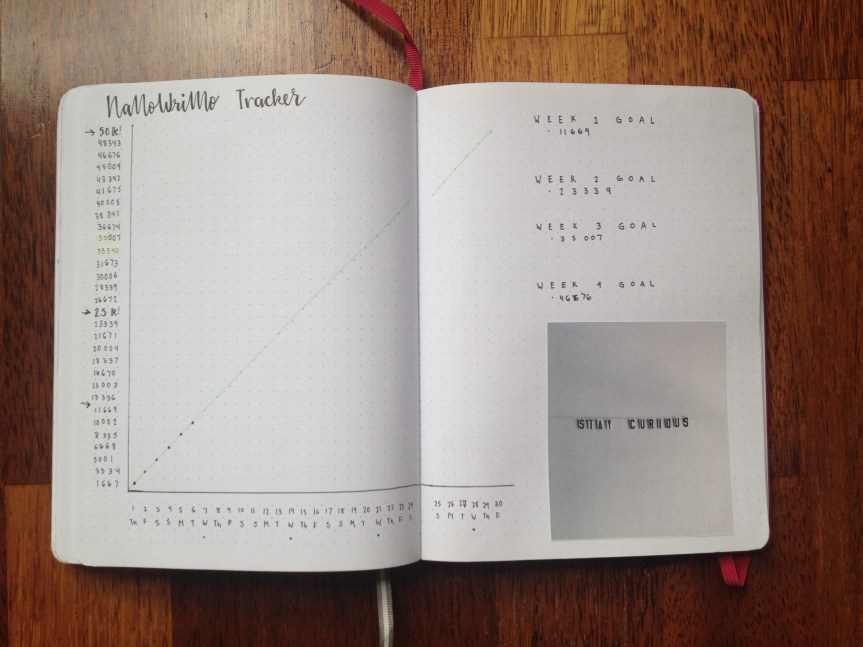 NaNoWriMo Tracker
→ 50K!
48343
46676
45009
43342
41675
40008
38341
36674
35007
33340
31673
30006
28339
26672
→ 25K!
23339
21671
20004
18337
16670
15003
13336
→ 11669
10002
8335
6668
5001
3334
1667
1 2 3 4 5 6 7 8 9 10 11 12 13 14 15 16 17 18 19 20 21 22 23 24
Th F S S M T W Th F S S M T W Th F S S M T W Th F S
25 26 27 28 29 30
S M T W Th F
WEEK 1 GOAL
· 11669
WEEK 2 GOAL
· 23339
WEEK 3 GOAL
· 35007
WEEK 4 GOAL
· 46676
STAY CURIOUS